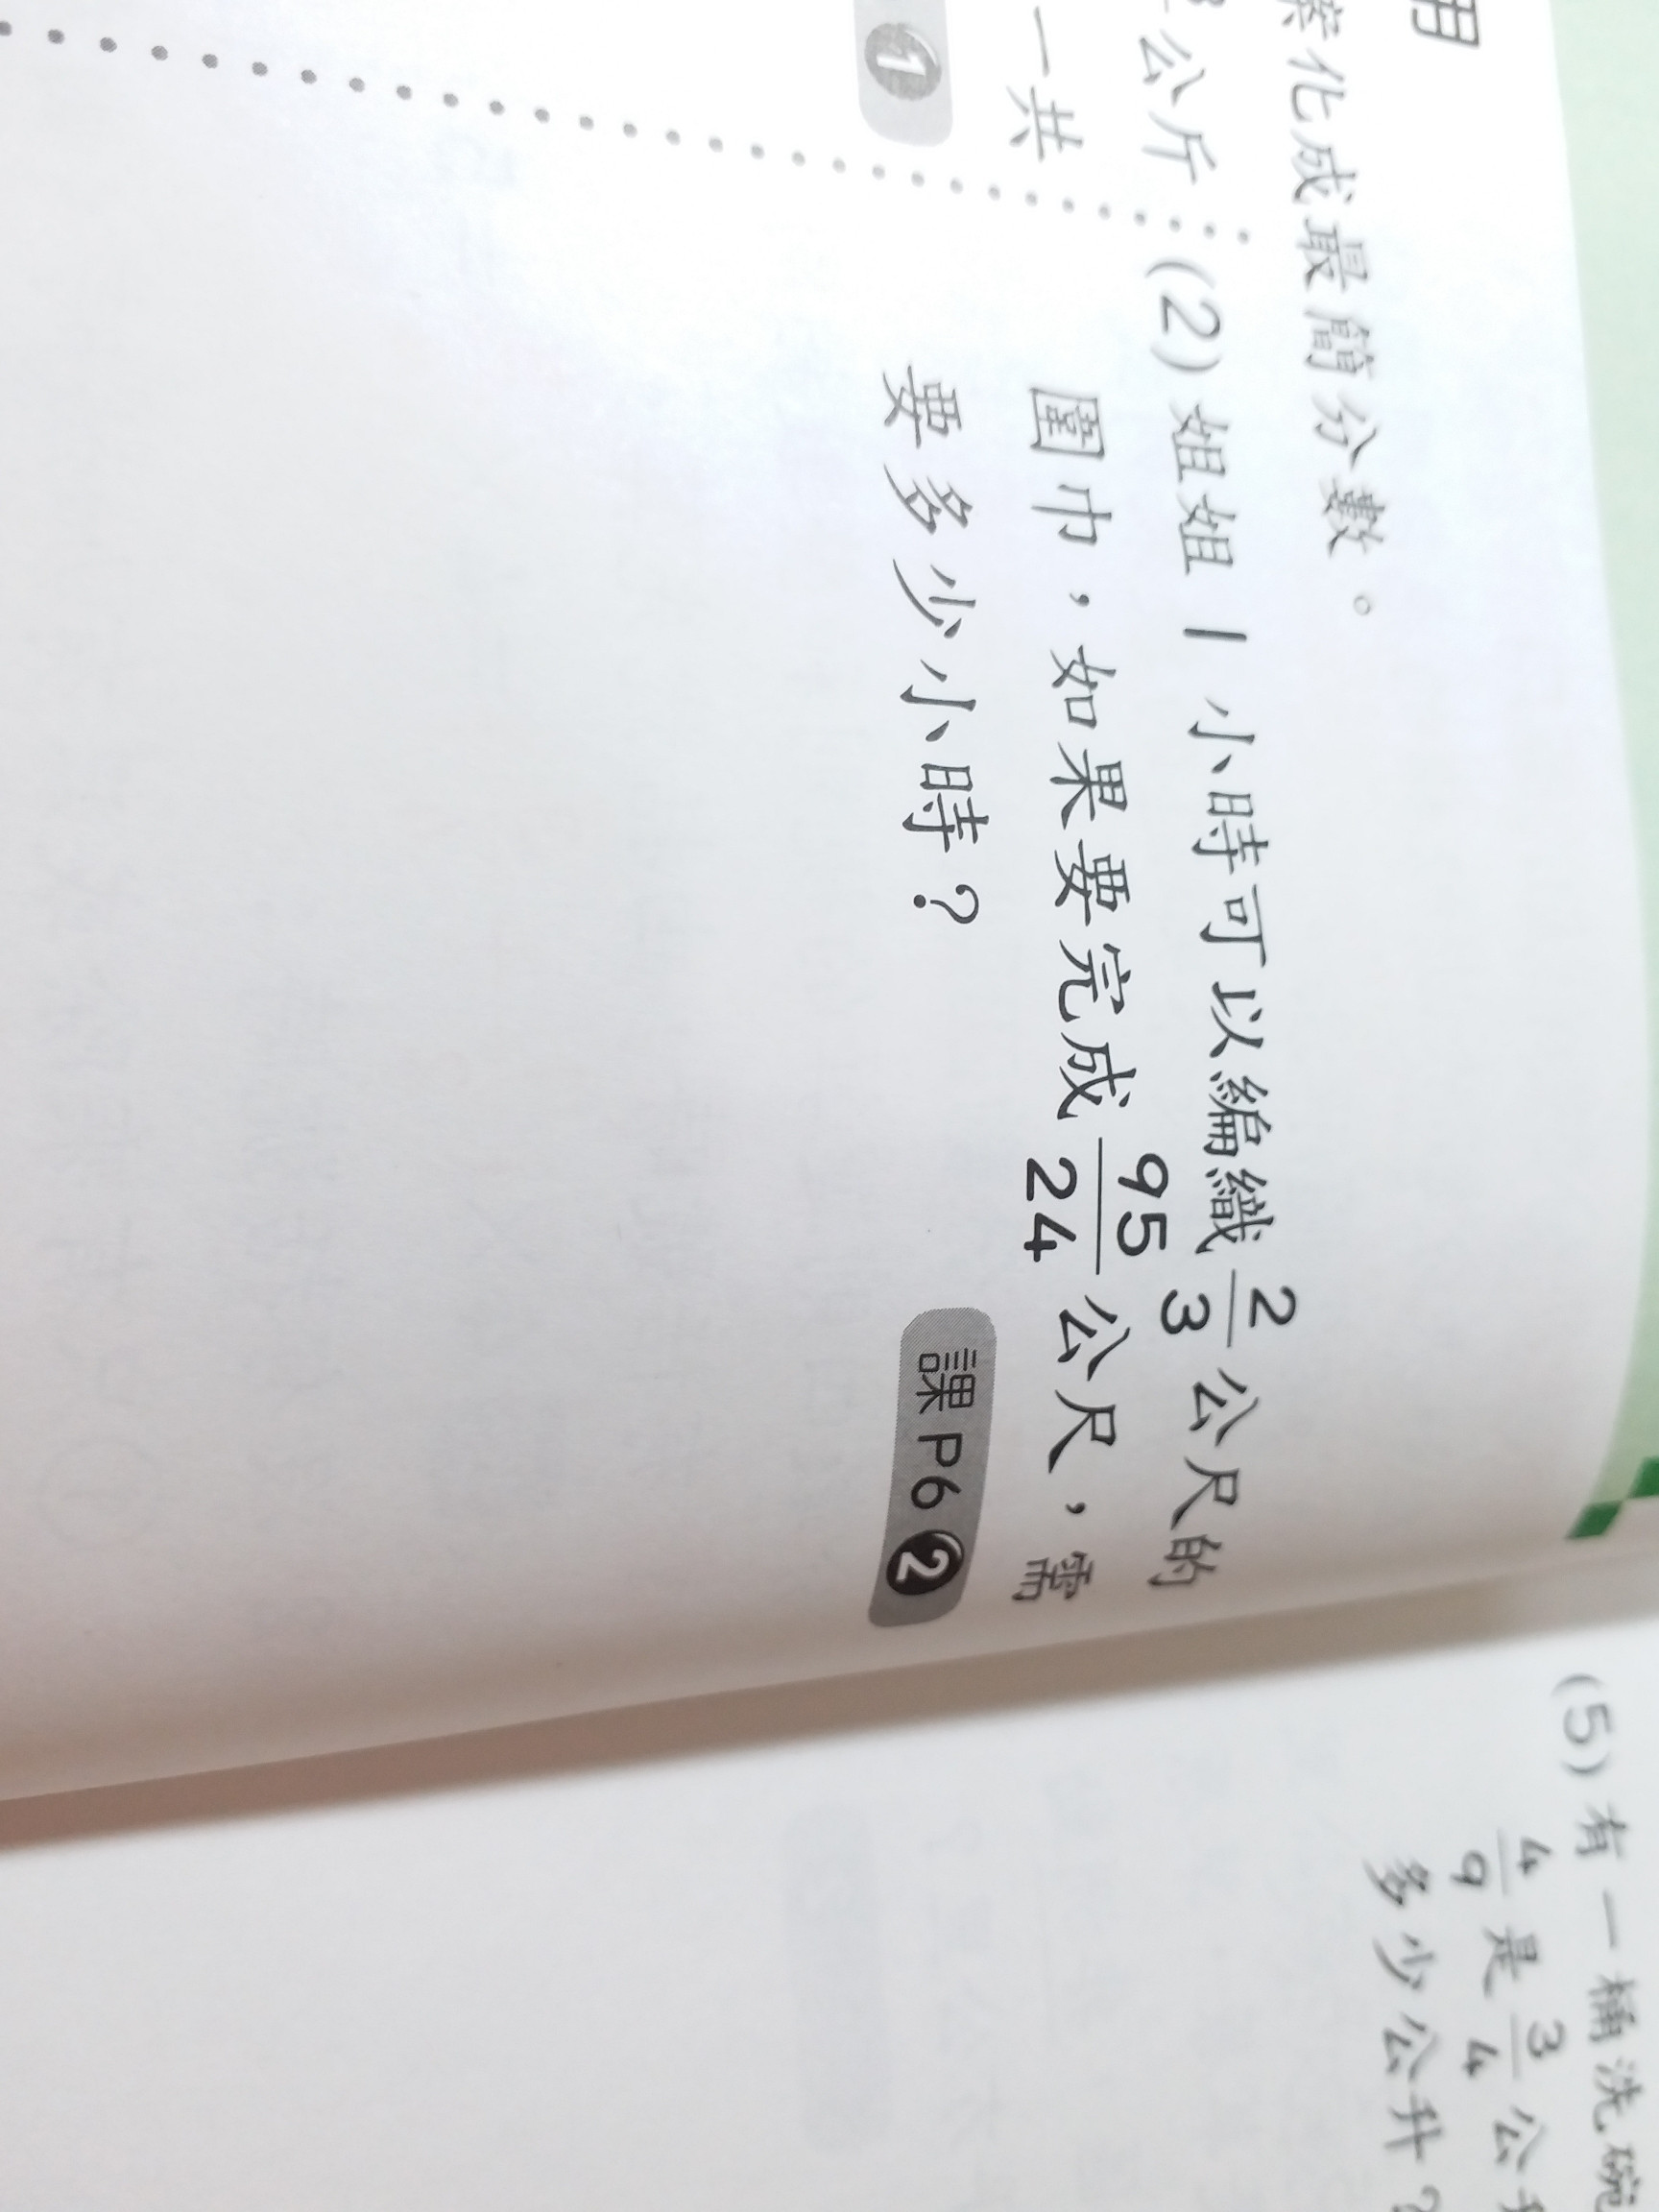 用
案化成最簡分數。
公斤
一共
1
(2) 姐姐 1 小時可以編織 2/3 公尺的
圍巾，如果要完成 95/24 公尺，需
要多少小時？
課 P6 2
(5) 有一桶洗碗
4/9 是 3/4 公升
多少公升？